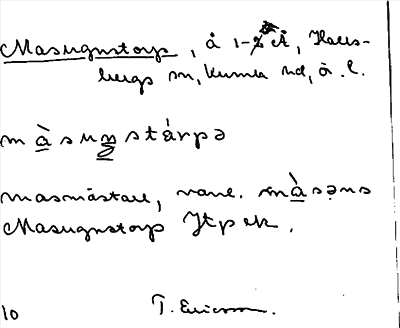 Masugnstorp, å 1-2 Å, Halls-
bergs sn, Kumla hd, Ö. L.
màsuŋstárpə
masmästare, vanl. màsəns
Masugnstorp Jtp ek.
10 T. Ericsson.